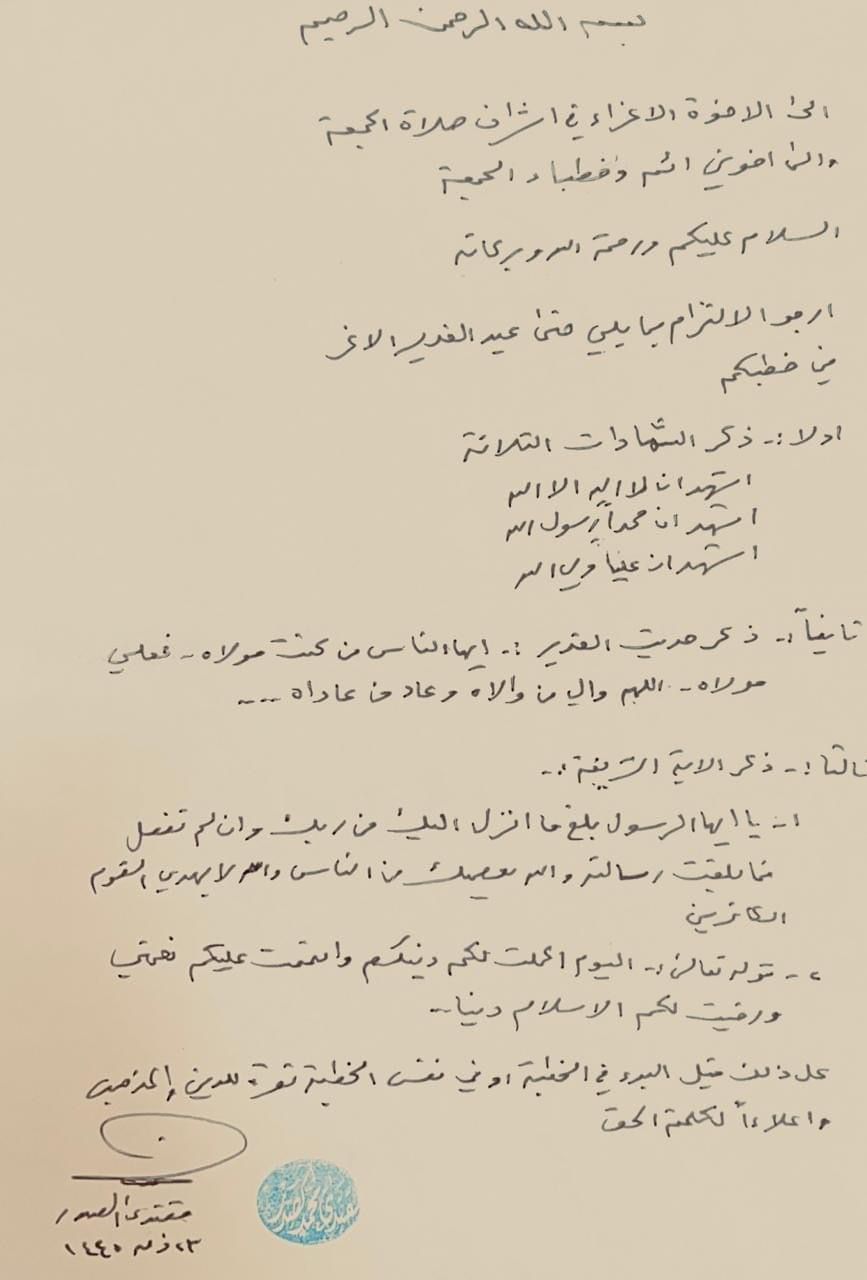 بسم الله الرحمن الرحيم
الى الاخوة الاعزاء في اشراف صلاة الجمعة
والى اخوتي ائمة وخطباء الجمعة
السلام عليكم ورحمة الله وبركاته
ارجو الالتزام بما يلي حتى عيد الغدير الاغر
في خطبكم
اولا :- ذكر الشهادات الثلاثة
اشهد ان لا اله الا الله
اشهد ان محمداً رسول الله
اشهد ان علياً ولي الله
ثانياً :- ذكر حديث الغدير :- ايها الناس من كنت مولاه - فعلي
مولاه - اللهم والي من والاه وعاد من عاداه ...
ثالثا :- ذكر الاية الشريفة :-
١- يا ايها الرسول بلغ ما انزل اليك من ربك وان لم تفعل
فما بلغت رسالته والله يعصمك من الناس والله لا يهدي القوم
الكافرين
٢- قوله تعالى :- اليوم اكملت لكم دينكم واتممت عليكم نعمتي
ورضيت لكم الاسلام دينا ..
كل ذلك قبل البدء في الخطبة او في نفس الخطبة نصرة للدين والمذهب
واعلاءاً لكلمة الحق
مقتدى الصدر
٢٣ ذ ١٤٤٥